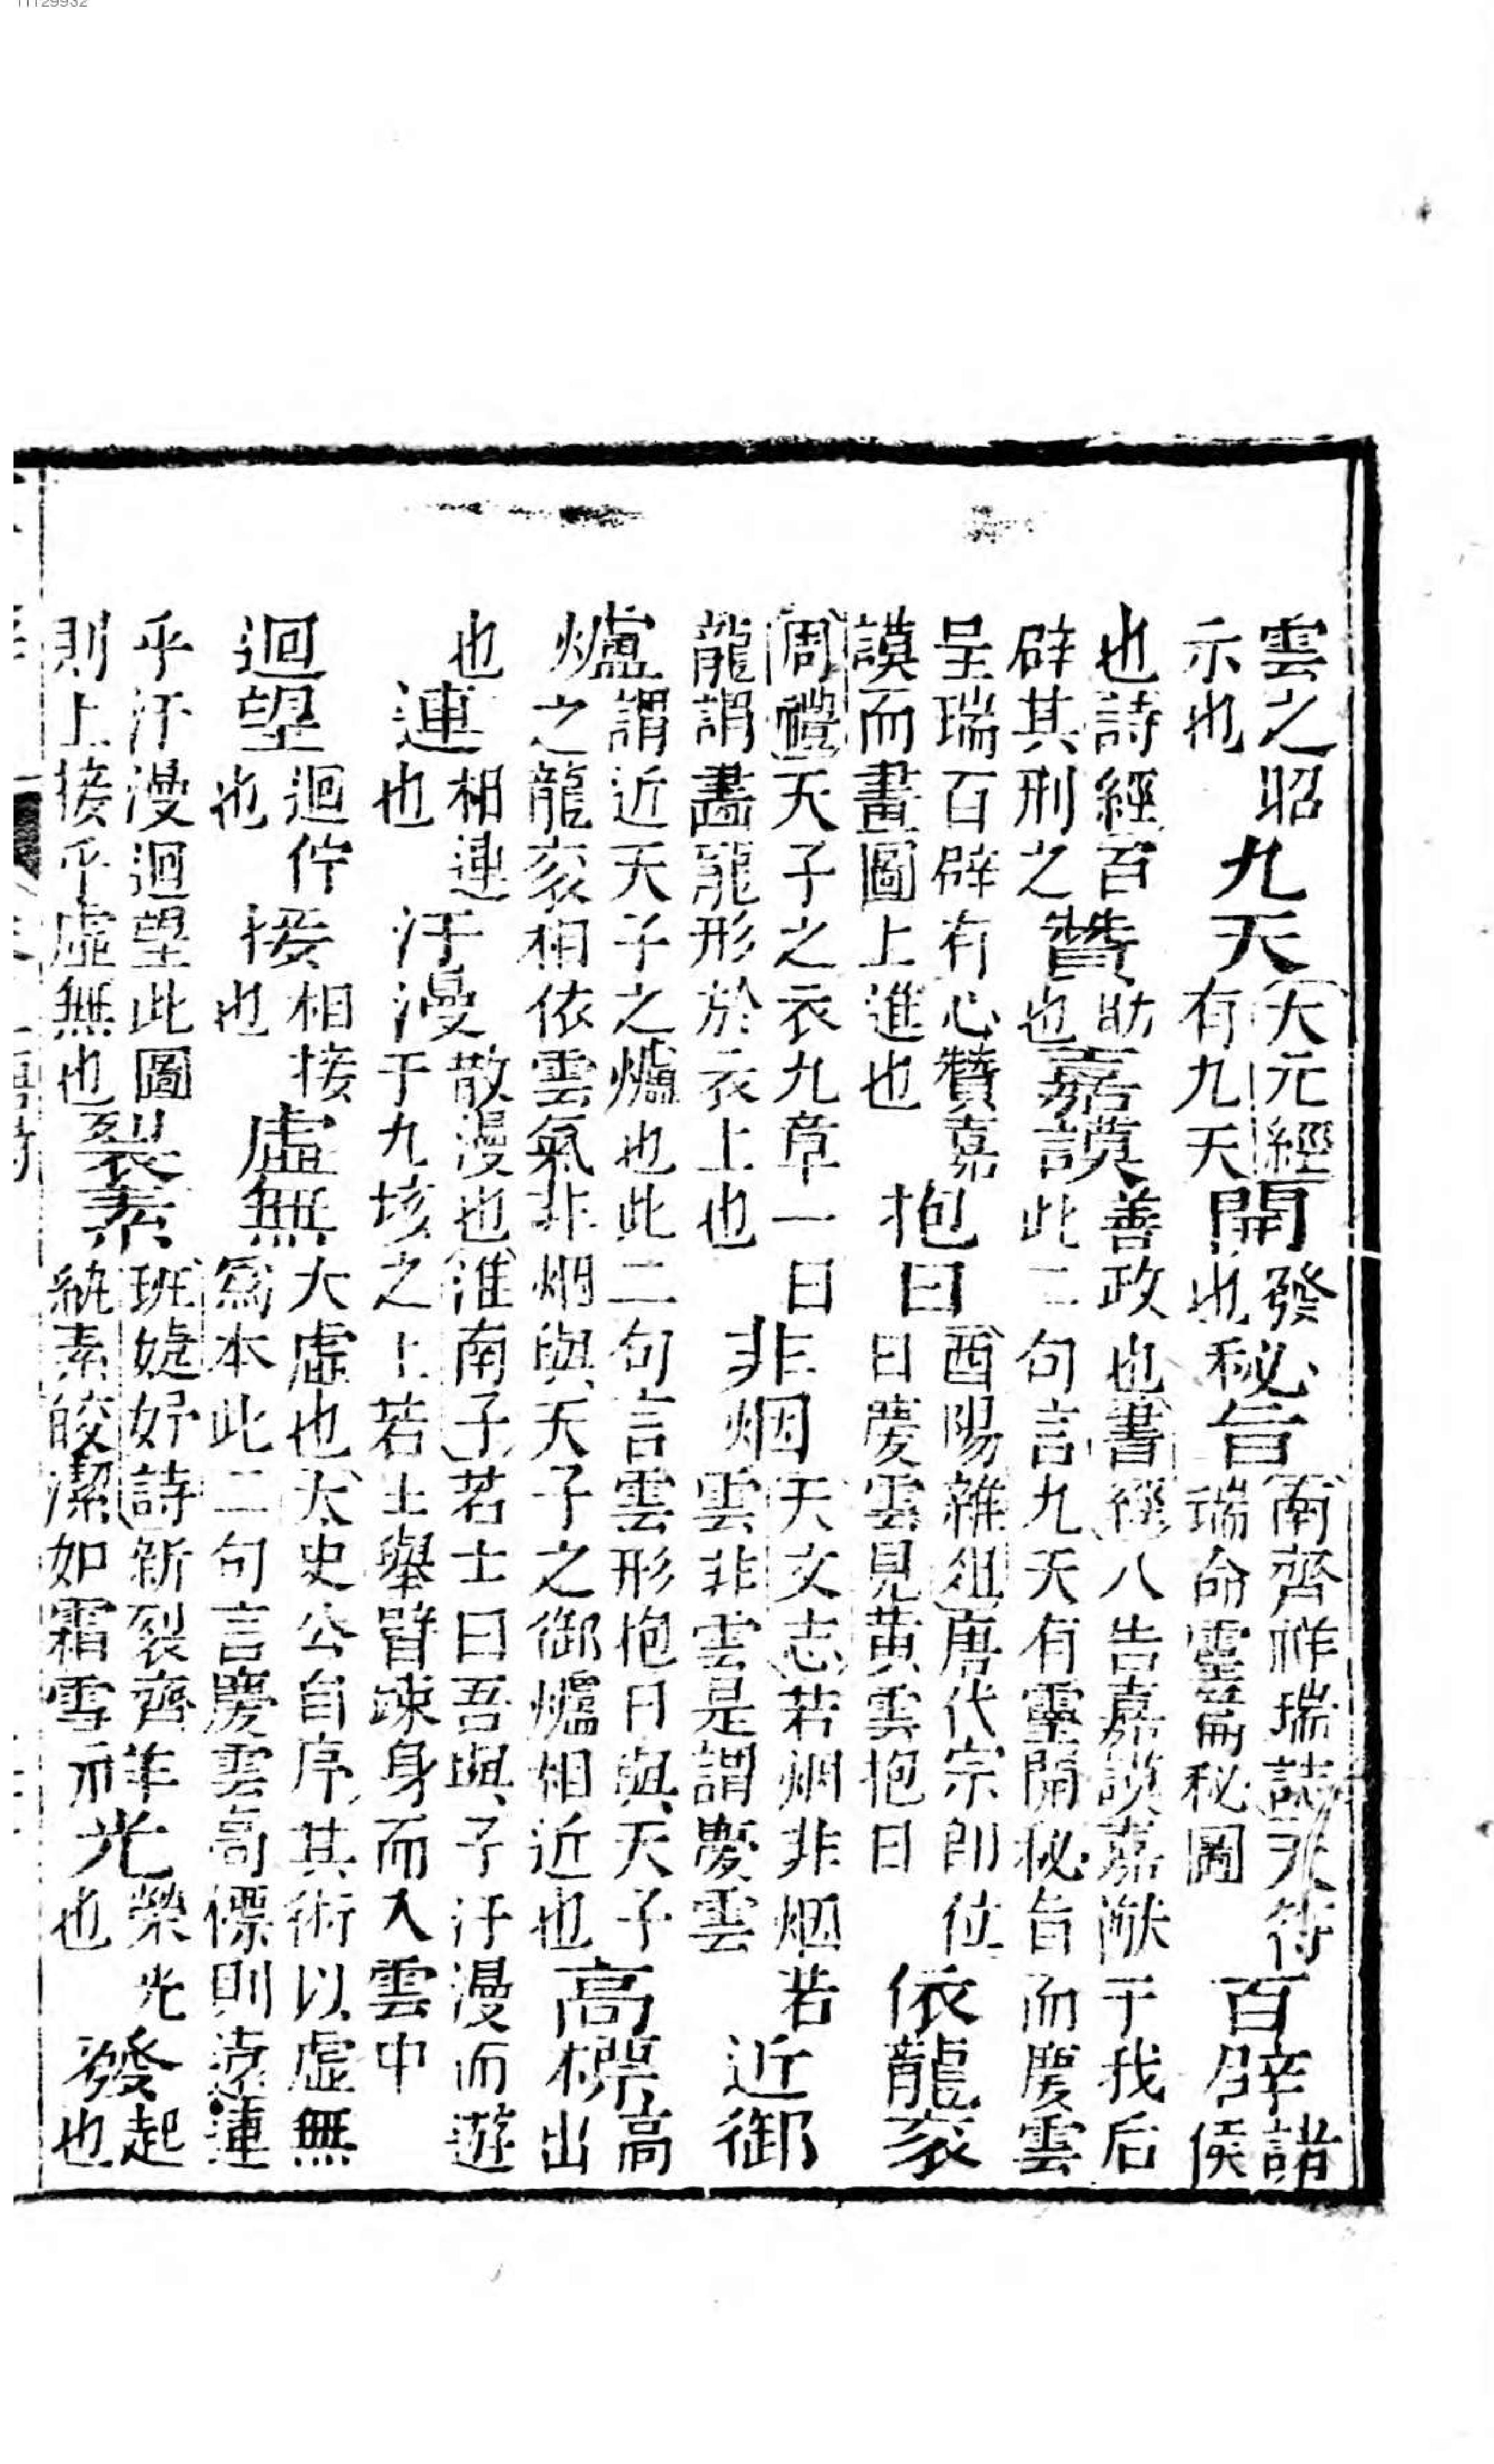 雲之昭示也九天太元經有九天開發也秘旨南齊祥瑞誌天符瑞命靈篇秘圖百辟諸侯
也詩經百辟其刑之贊助也嘉謨善政也書經入告嘉謨嘉猷于我后此二句言九天有靈開秘旨而慶雲
呈瑞百辟有心贊嘉謨而畫圖上進也抱日酉陽雜俎唐代宗即位日慶雲見黃雲抱日依龍袞
周禮天子之衣九章一曰龍謂畫龍形於衣上也非烟天文志若烟非烟若雲非雲是謂慶雲近御
爐謂近天子之爐也此二句言雲形抱日與天子之龍袞相依雲氣非烟與天子之御爐相近也高標高出
也連相連也汗漫散漫也淮南子若士曰吾與子汗漫而遊于九垓之上若士舉臂竦身而入雲中
迴望迴佇也接相接也虛無大虛也太史公自序其術以虛無爲本此二句言慶雲高標則遠連
乎汗漫迴望此圖則上接乎虛無也裂素班婕妤詩新裂齊紈素皎潔如霜雪祥光榮光也發起也